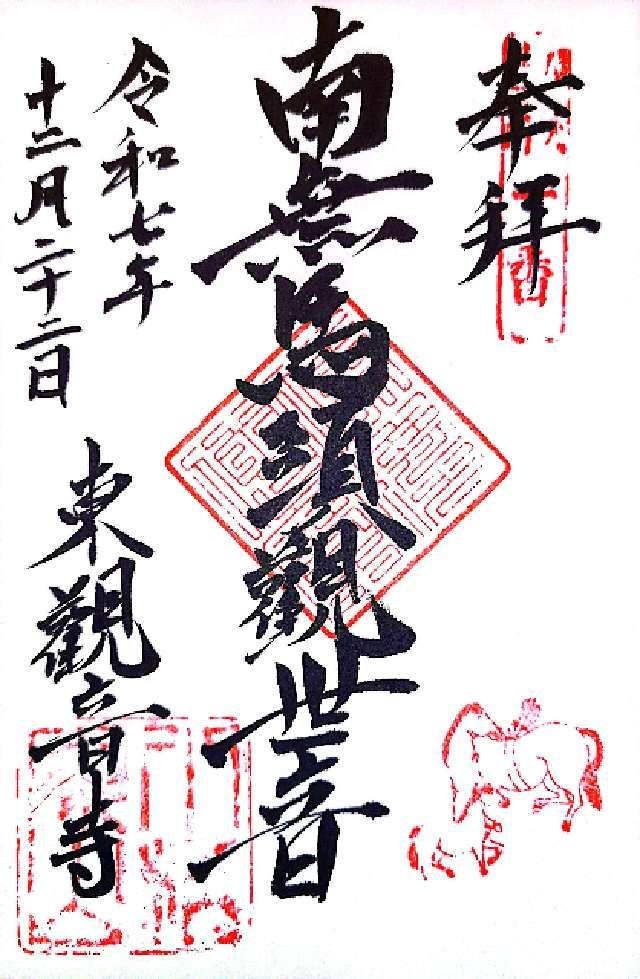 奉拝
南無馬頭観世音
令和七年
十二月二十二日
東観音寺